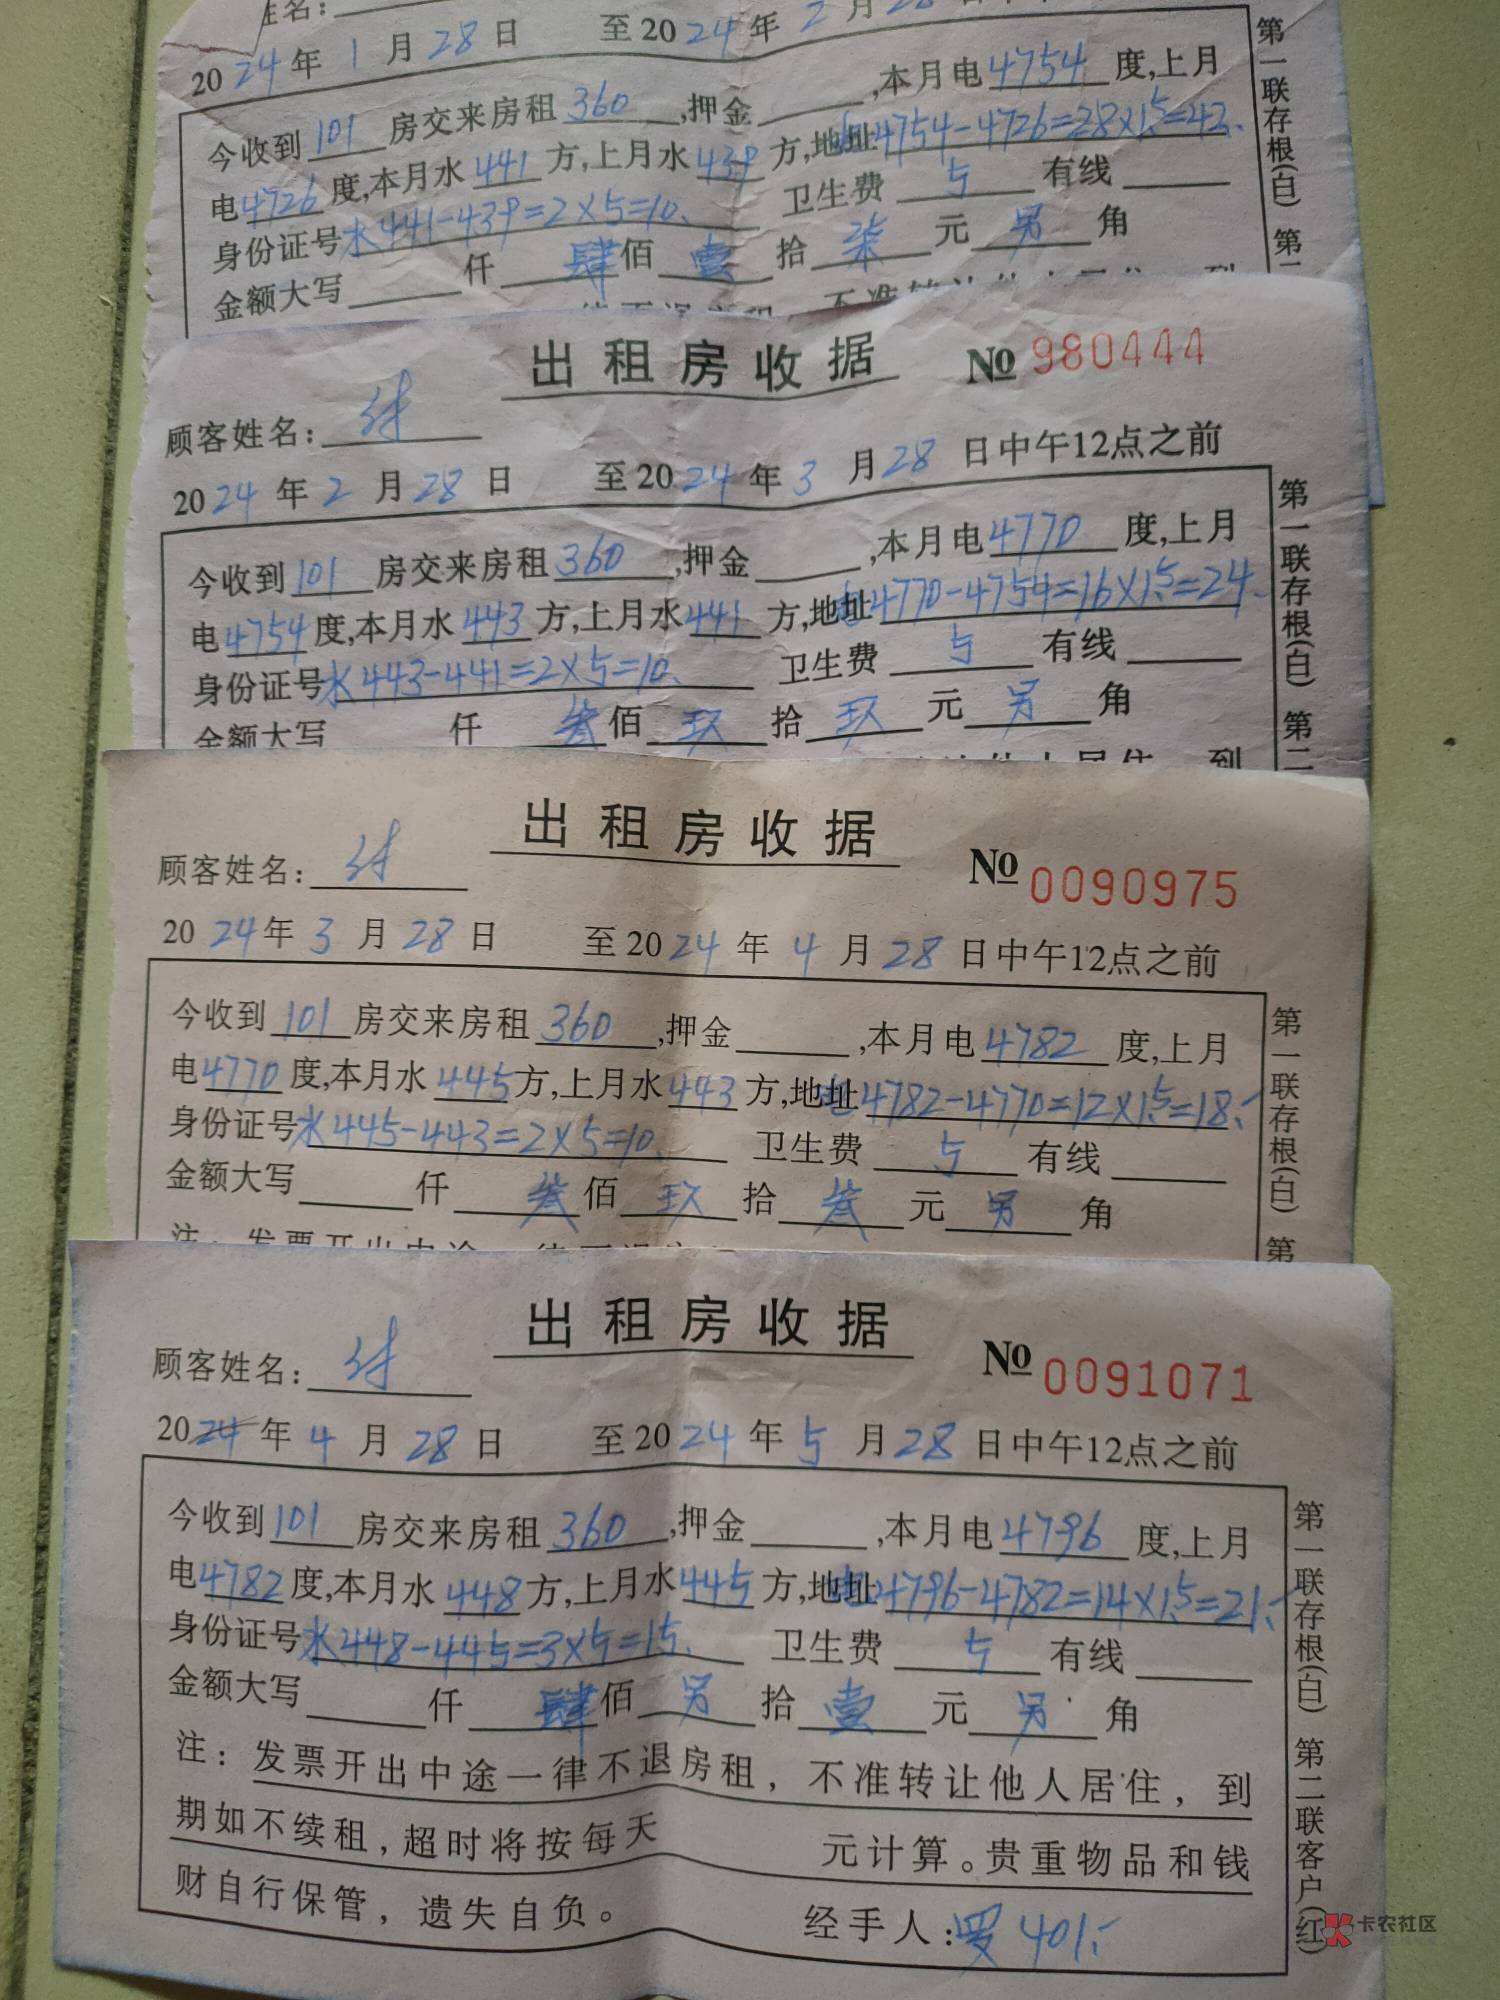 姓名：
2024年1月28日 至2024年2月28日中午
今收到101房交来房租360,押金 ,本月电4754度,上月
电4726度,本月水441方,上月水439方,地址电4754-4726=28×1.5=42.
身份证号水441-439=2×5=10. 卫生费5有线
金额大写 仟肆佰壹拾柒元另角
第一联存根(白) 第二
出租房收据 No 980444
顾客姓名：
2024年2月28日 至2024年3月28日中午12点之前
今收到101房交来房租360,押金 ,本月电4770度,上月
电4754度,本月水443方,上月水441方,地址电4770-4754=16×1.5=24.
身份证号水443-441=2×5=10. 卫生费5有线
金额大写 仟叁佰玖拾玖元另角
第一联存根(白) 第二
出租房收据 No 0090975
顾客姓名：
2024年3月28日 至2024年4月28日中午12点之前
今收到101房交来房租360,押金 ,本月电4782度,上月
电4770度,本月水445方,上月水443方,地址电4782-4770=12×1.5=18.-
身份证号水445-443=2×5=10. 卫生费5有线
金额大写 仟叁佰玖拾叁元另角
注：发票开出中途一律不退房
第一联存根(白) 第
出租房收据 No 0091071
顾客姓名：
2024年4月28日 至2024年5月28日中午12点之前
今收到101房交来房租360,押金 ,本月电4796度,上月
电4782度,本月水448方,上月水445方,地址电4796-4782=14×1.5=21.-
身份证号水448-445=3×5=15. 卫生费5有线
金额大写 仟肆佰另拾壹元另角
注：发票开出中途一律不退房租，不准转让他人居住，到
期如不续租，超时将按每天 元计算。贵重物品和钱
财自行保管，遗失自负。 经手人：罗 401.-
第一联存根(白) 第二联客户(红)
卡农社区